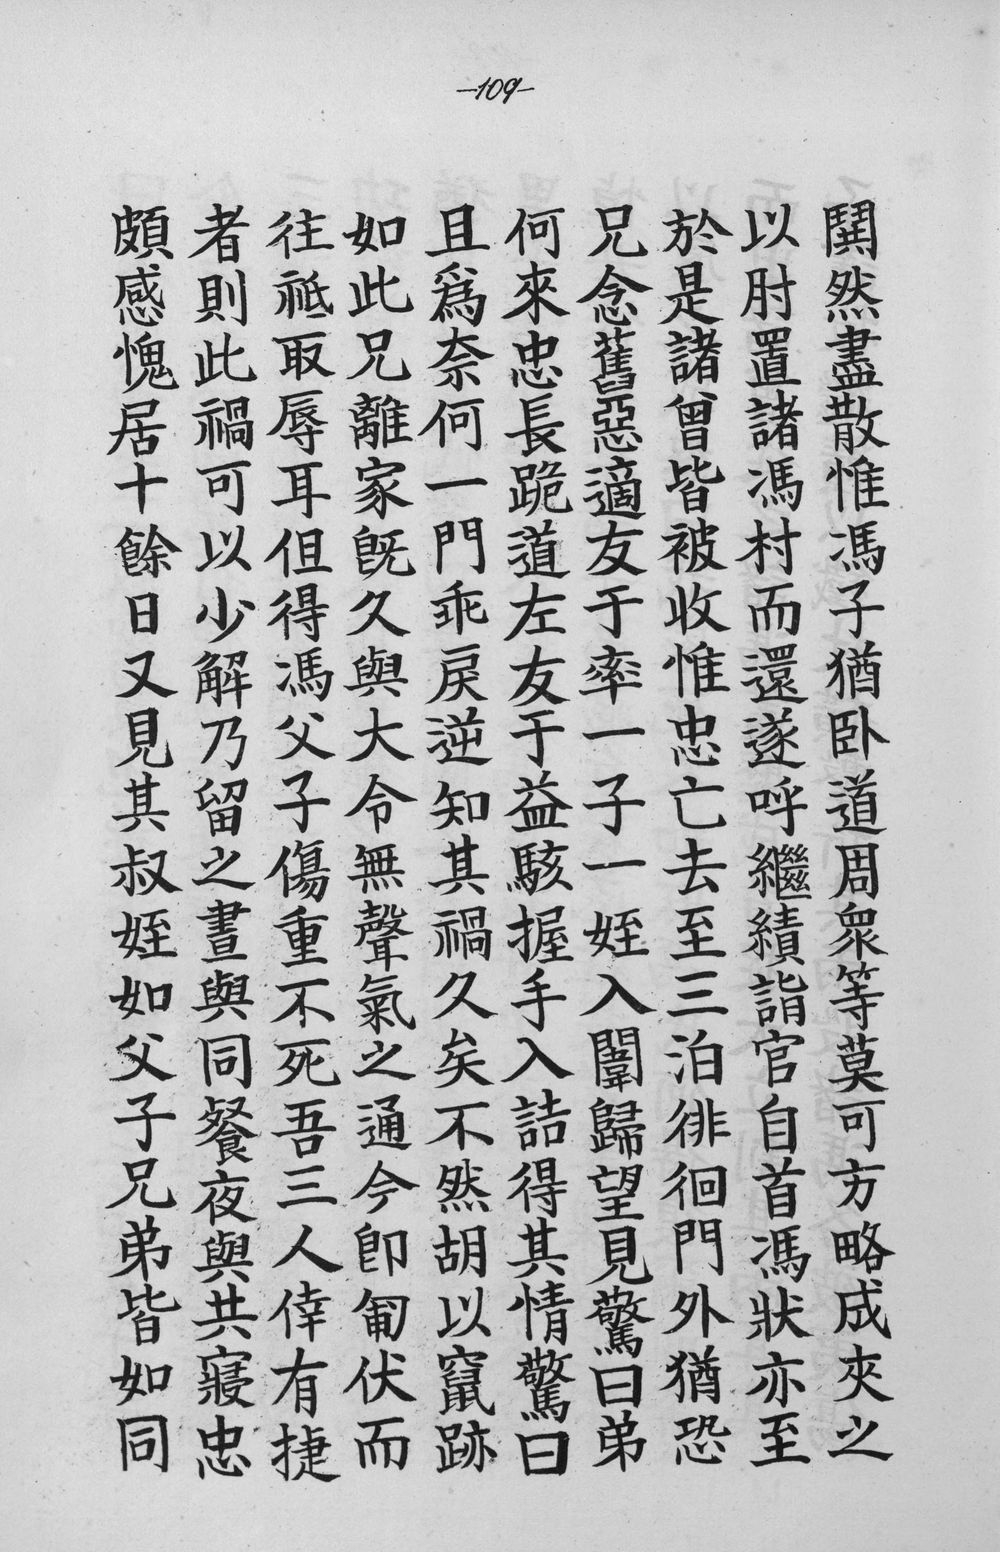 -109-
鬨然盡散惟馮子猶臥道周衆等莫可方略成夾之
以肘置諸馮村而還遂呼繼績詣官自首馮狀亦至
於是諸曾皆被收惟忠亡去至三泊徘徊門外猶恐
兄念舊惡適友于率一子一姪入闈歸望見驚曰弟
何來忠長跪道左友于益駭握手入詰得其情驚曰
且爲奈何一門乖戾逆知其禍久矣不然胡以竄跡
如此兄離家旣久與大令無聲氣之通今卽匍伏而
往祗取辱耳但得馮父子傷重不死吾三人倖有捷
者則此禍可以少解乃留之晝與同餐夜與共寢忠
頗感愧居十餘日又見其叔姪如父子兄弟皆如同